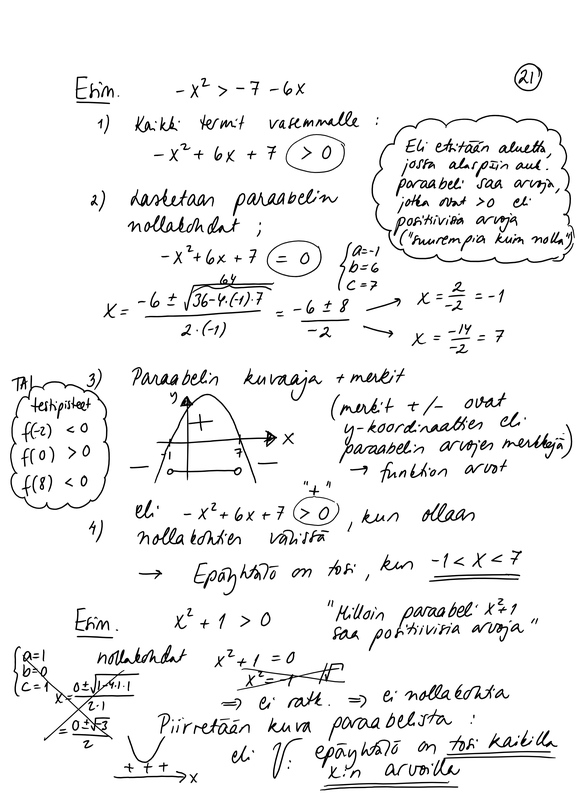 21
Esim. -x² > -7 -6x
1) Kaikki termit vasemmalle :
-x² + 6x + 7 > 0
Eli etsitään aluetta,
jossa alaspäin auk.
paraabeli saa arvoja,
jotka ovat >0 eli
positiivisia arvoja
("suurempia kuin nolla")
2) Lasketaan paraabelin
nollakohdat ;
-x² + 6x + 7 = 0
a=-1
b=6
c=7
64
x = (-6 ± √(36-4·(-1)·7)) / (2·(-1)) = (-6 ± 8) / (-2)
x = 2/(-2) = -1
x = -14/(-2) = 7
3) Paraabelin kuvaaja + merkit
TAI
testipisteet
f(-2) < 0
f(0) > 0
f(8) < 0
y
+
x
-1
7
— —
(merkit +/- ovat
y-koordinaattien eli
paraabelin arvojen merkkejä)
→ funktion arvot
"+"
4) eli -x² + 6x + 7 > 0 , kun ollaan
nollakohtien välissä
→ Epäyhtälö on tosi, kun -1 < x < 7
Esim. x² + 1 > 0
"Milloin paraabeli x²+1
saa positiivisia arvoja"
a=1
b=0
c=1
x = (0±√(1-4·1·1)) / (2·1)
= (0±√-3) / 2
nollakohdat x² + 1 = 0
x² = -1 |√
⇒ ei ratk. ⇒ ei nollakohtia
Piirretään kuva paraabelista :
+ + +
x
eli V: epäyhtälö on tosi kaikilla
x:n arvoilla